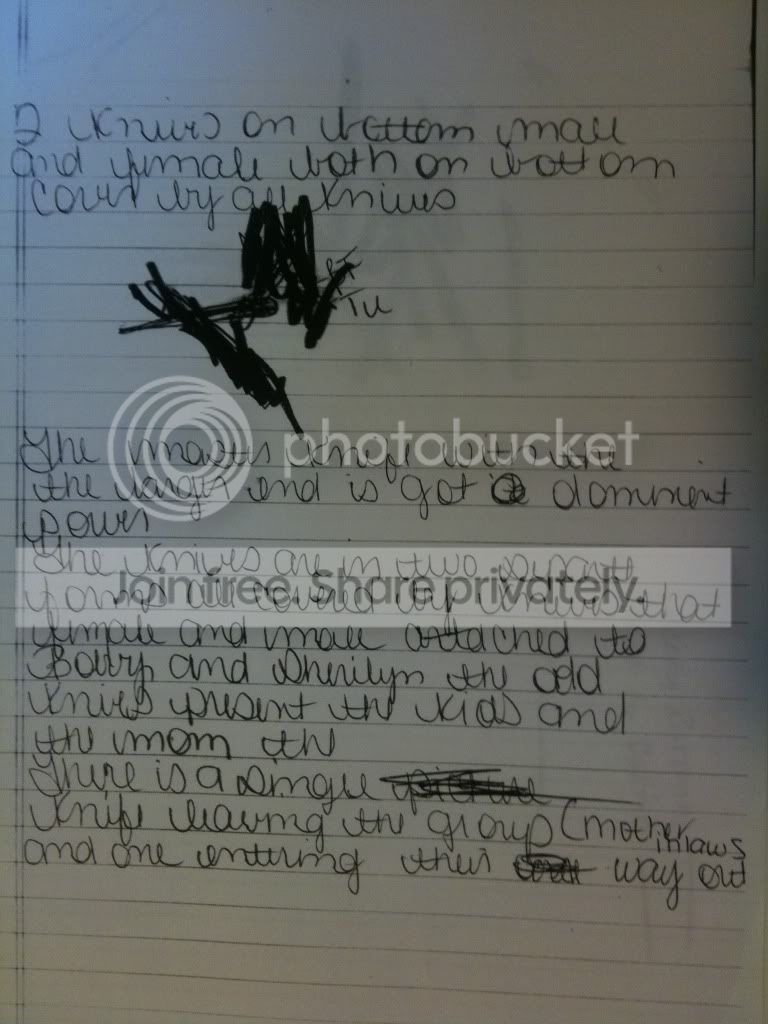 2 Knives on bottom male
and female both on bottom
cover by all Knives
The master Knife with the
the larger end is got a domminent
power
photobucket
The Knives are in two separte
Join free. Share privately.
all covered by Knives that
female and male attached to
Bobby and Sherilyn the odd
Knives present the Kids and
the mom the
There is a single picture
Knife leaving the group (mother
inlaws
and one entering their way out